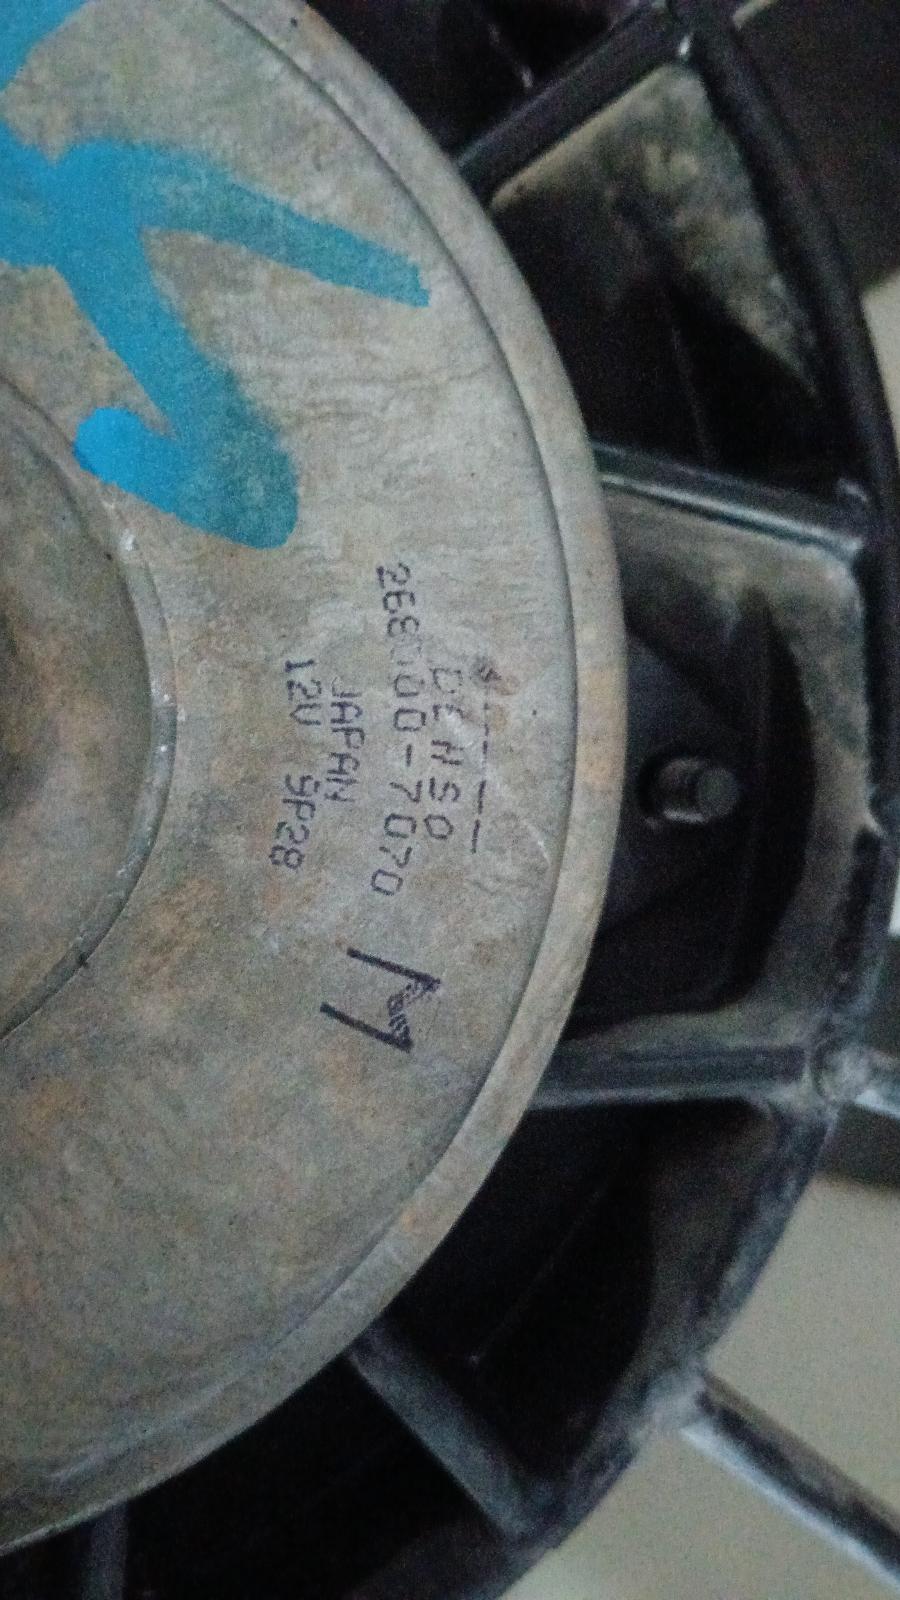 DENSO
268000-7070
JAPAN
12V 9P28
M